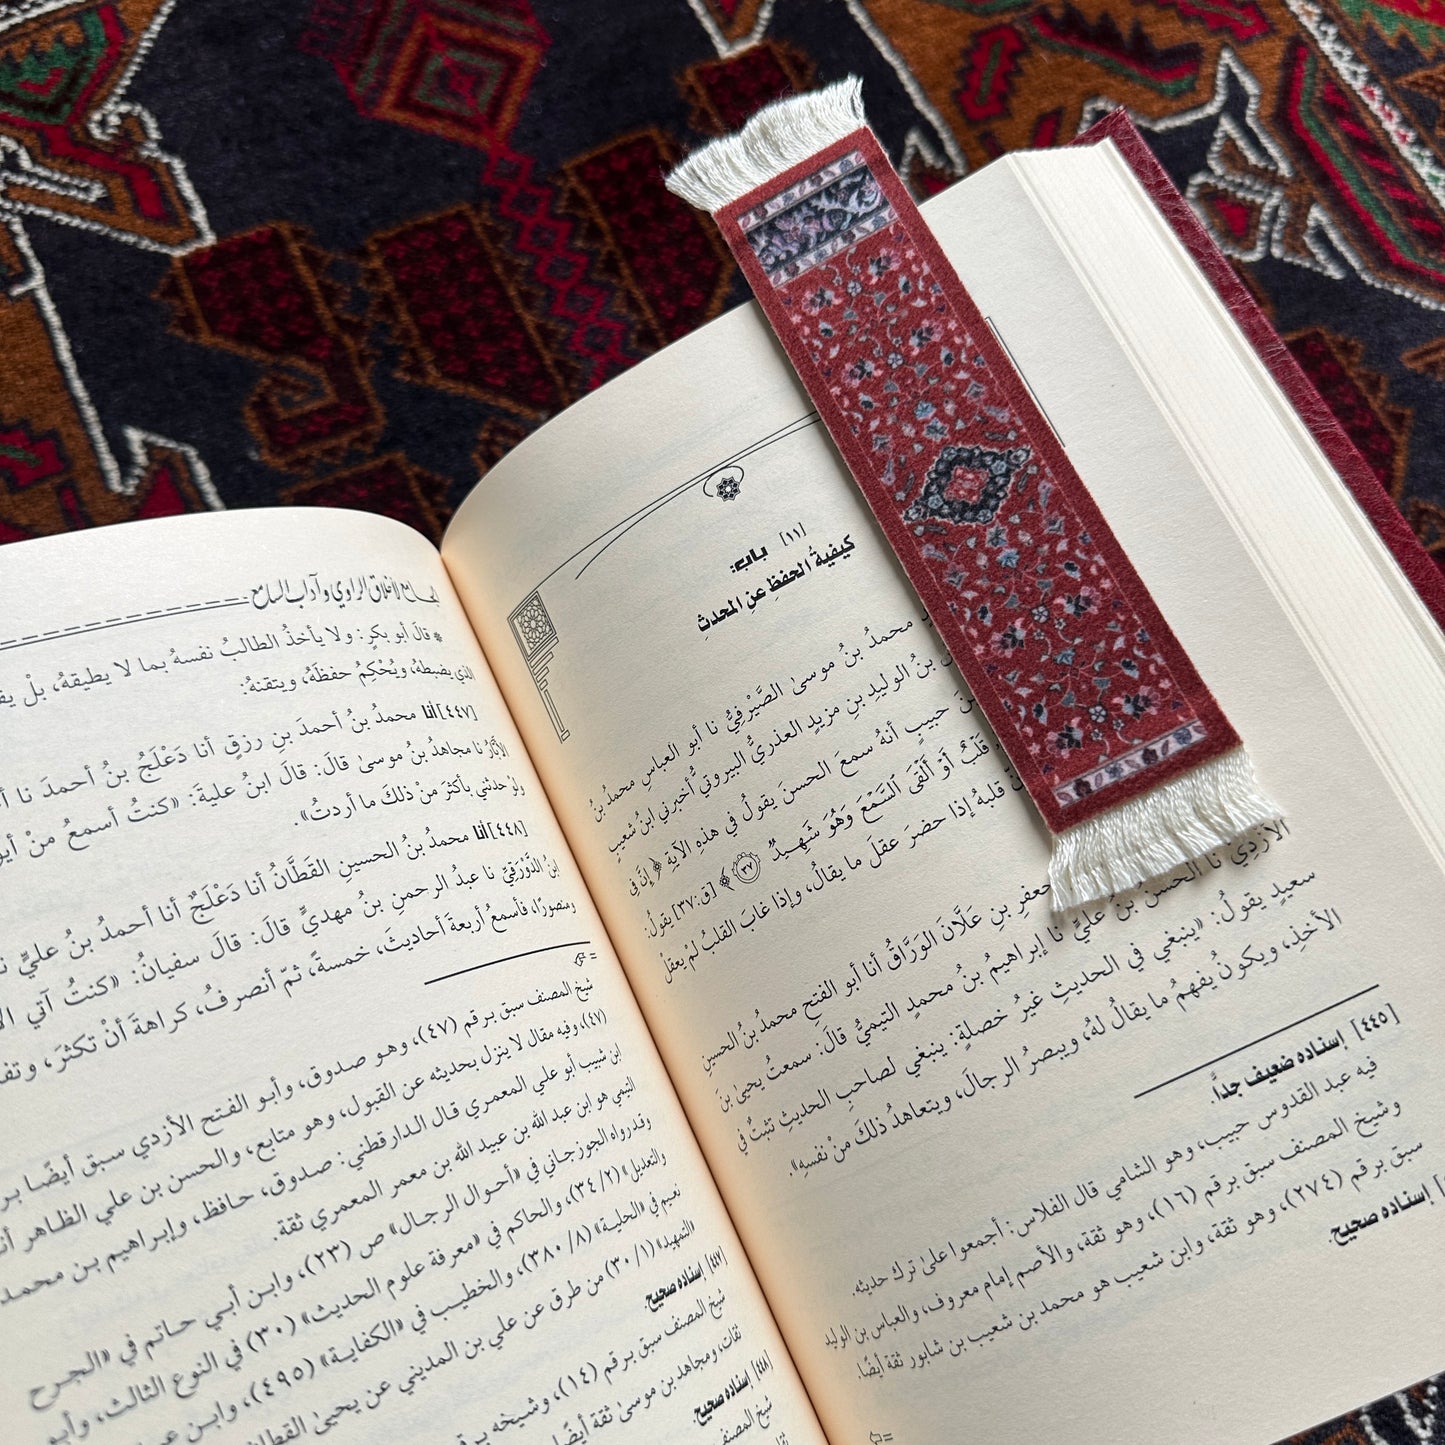 [١١] باب:
كيفيةُ الحفظِ عنِ المحدثِ
محمدُ بنُ موسىٰ الصَّيْرفِيُّ نا أبو العباسِ محمدُ بنُ
بنُ الوليدِ بنِ مزيدٍ العذريُّ البيروتيُّ أخبرني ابنُ شعيبٍ
حبيبٍ أنهُ سمعَ الحسنَ يقولُ في هذهِ الآيةِ ﴿إِنَّ فِي
قَلْبٌ أَوْ أَلْقَى ٱلسَّمْعَ وَهُوَ شَهِيدٌ ٣٧﴾ [ق:٣٧] يقولُ:
قلبهُ إذا حضرَ عقلَ ما يقالُ، وإذا غابَ القلبُ لمْ يعقلْ
جعفرِ بنِ عَلَّانَ الوَرَّاقُ أنا أبو الفتحِ محمدُ بنُ الحسينِ
الأزديُّ نا الحسنُ بنُ عليٍّ نا إبراهيمُ بنُ محمدٍ التيميُّ قالَ: سمعتُ يحيىٰ بنَ
سعيدٍ يقولُ: «ينبغي في الحديثِ غيرُ خصلةٍ: ينبغي لصاحبِ الحديثِ تثبتٌ في
الأخذِ، ويكونُ يفهمُ ما يقالُ لهُ، ويبصرُ الرجالَ، ويتعاهدُ ذلكَ منْ نفسهِ».
[٤٤٥] إسناده ضعيف جدًا.
فيه عبد القدوس حبيب، وهو الشامي قال الفلاس: أجمعوا علىٰ ترك حديثه.
وشيخ المصنف سبق برقم (١٦)، وهو ثقة، والأصم إمام معروف، والعباس بن الوليد
سبق برقم (٢٧٤)، وهو ثقة، وابن شعيب هو محمد بن شعيب بن شابور ثقة أيضًا.
إسناده صحيح.
الجامع لأخلاق الراوي وآداب السامع
* قالَ أبو بكرٍ: ولا يأخذُ الطالبُ نفسهُ بما لا يطيقهُ، بلْ
الذي يضبطهُ، ويُحْكِمُ حفظَهُ، ويتقنهُ:
[٤٤٧] أنا محمدُ بنُ أحمدَ بنِ رزقٍ أنا دَعْلَجُ بنُ أحمدَ نا
الأَبَّارُ نا مجاهدُ بنُ موسىٰ قالَ: قالَ ابنُ عليةَ: «كنتُ أسمعُ منْ
ولوْ حدثني بأكثرَ منْ ذلكَ ما أردتُ».
[٤٤٨] أنا محمدُ بنُ الحسينِ القَطَّانُ أنا دَعْلَجٌ أنا أحمدُ بنُ عليٍّ
ابنُ الدَّوْرَقِيِّ نا عبدُ الرحمنِ بنُ مهديٍّ قالَ: قالَ سفيانُ: «كنتُ آتي
ومنصورًا، فأسمعُ أربعةَ أحاديثَ، خمسةً، ثمّ أنصرفُ، كراهةَ أنْ تكثرَ،
=
شيخ المصنف سبق برقم (٤٧)، وهو صدوق، وأبو الفتح الأزدي سبق أيضًا
(٤٧)، وفيه مقال لا ينزل بحديثه عن القبول، وهو متابع، والحسن بن علي الظاهر
ابن شبيب أبو علي المعمري قال الدارقطني: صدوق، حافظ، وإبراهيم بن محمد
التيمي هو ابن عبد الله بن عبيد الله بن معمر المعمري ثقة.
وقد رواه الجوزجاني في «أحوال الرجال» ص (٢٣)، وابن أبي حاتم في «الجرح
والتعديل» (٢/ ٣٤)، والحاكم في «معرفة علوم الحديث» (٣٠) في النوع الثالث،
نعيم في «الحلية» (٨/ ٣٨٠)، والخطيب في «الكفاية» (٤٩٥)، وابن
«التمهيد» (١/ ٣٠) من طرق عن علي بن المديني عن يحيىٰ القطان
[٤٤٧] إسناده صحيح.
شيخ المصنف سبق برقم (١٤)، وشيخه
ثقات، ومجاهد بن موسىٰ ثقة أيضًا
[٤٤٨] إسناده صحيح.
شيخ المصنف